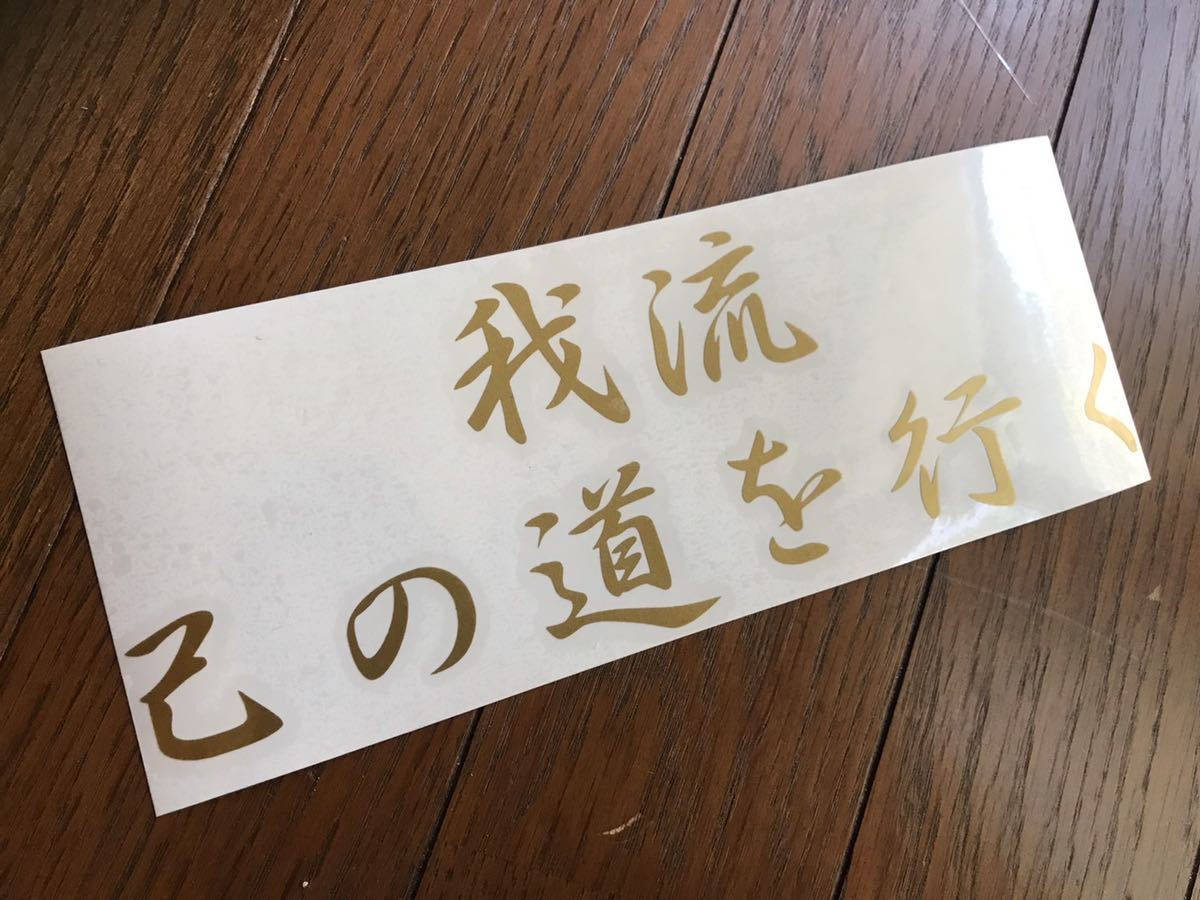 我流
己の道を行く